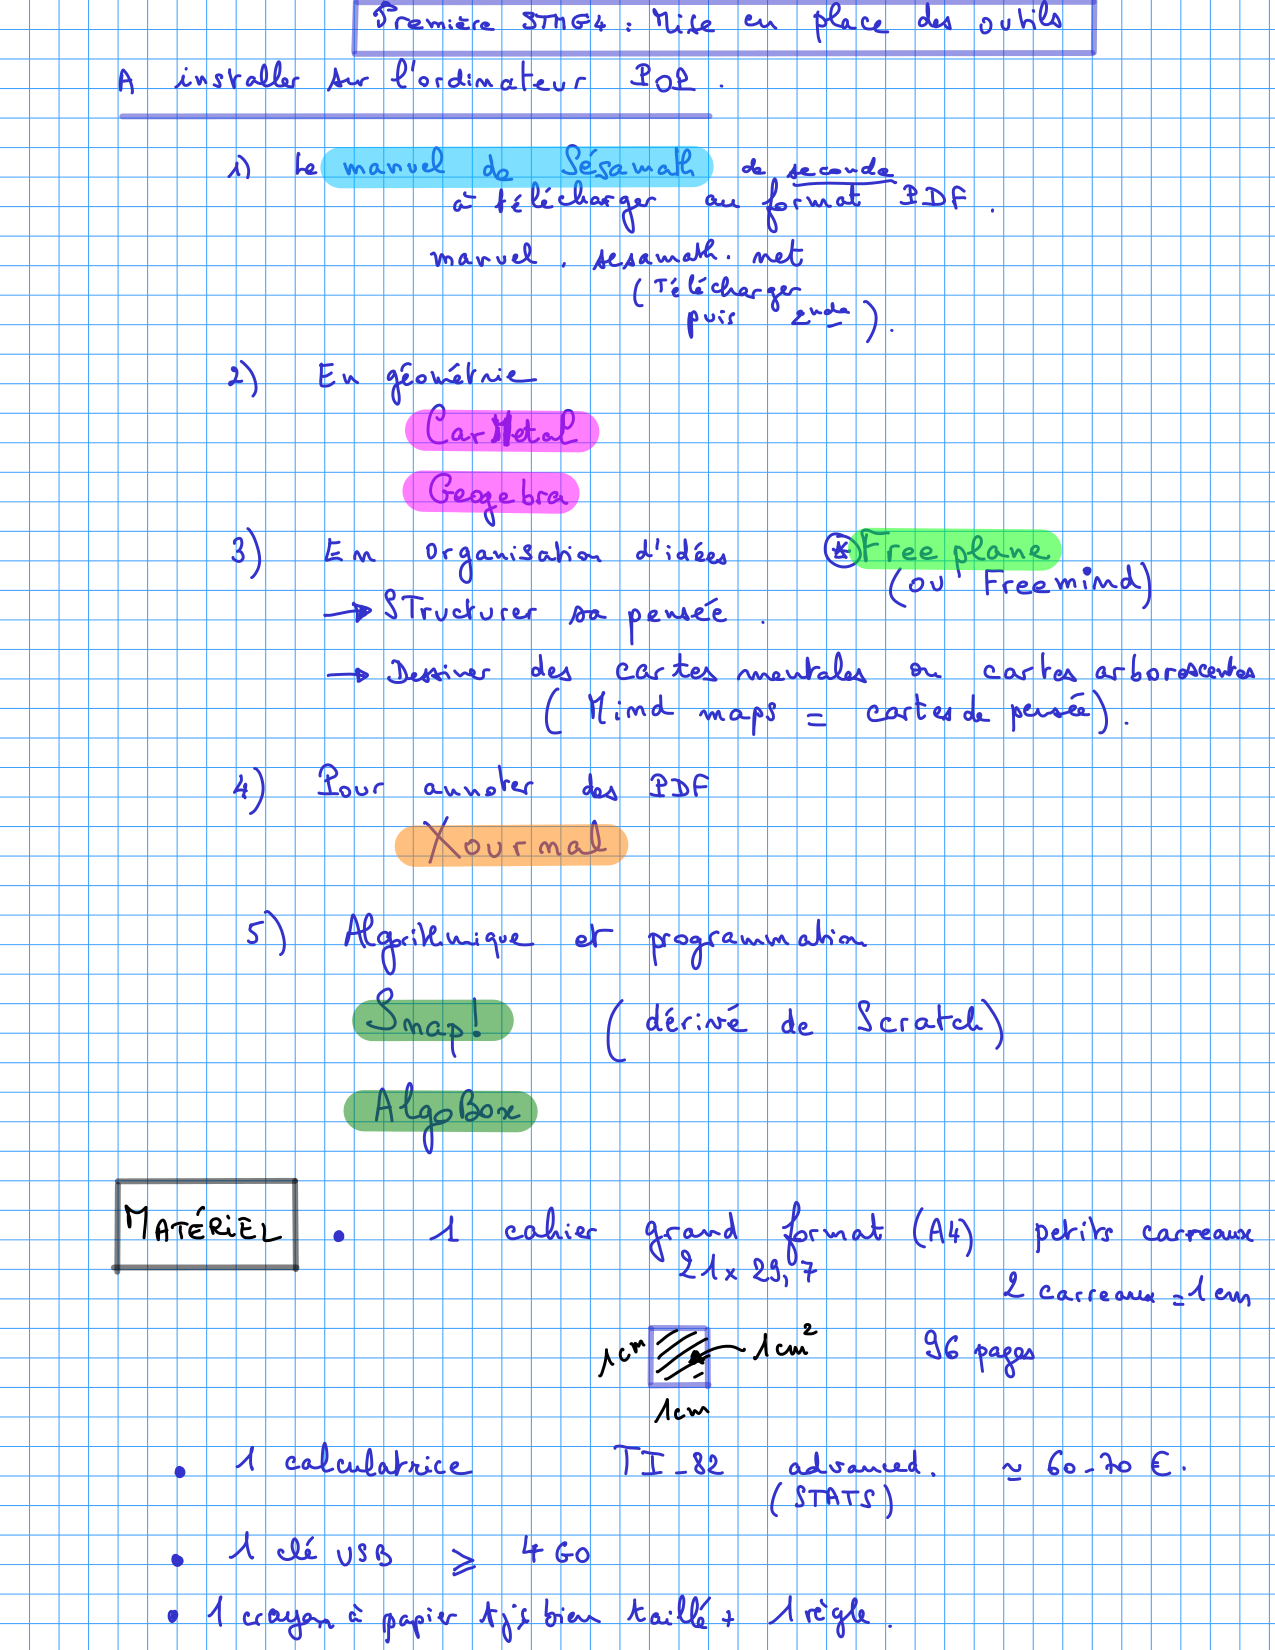 Première STMG4 : Mise en place des outils
A installer sur l'ordinateur POP.
1) Le manuel de Sésamath de seconde
à télécharger au format PDF.
manuel.sesamath.net
(Télécharger
puis 2nde).
2) En géométrie
CarMetal
Geogebra
3) En organisation d'idées * Freeplane
(ou Freemind)
→ Structurer sa pensée.
→ Dessiner des cartes mentales ou cartes arborescentes
(Mind maps = cartes de pensée).
4) Pour annoter des PDF
Xournal
5) Algorithmique et programmation
Snap! (dérivé de Scratch)
AlgoBox
MATÉRIEL • 1 cahier grand format (A4) petits carreaux
21 x 29,7
2 carreaux = 1 cm
1cm 1cm² 96 pages
1cm
• 1 calculatrice TI-82 advanced. ≃ 60-70 €.
(STATS)
• 1 clé USB ⩾ 4 GO
• 1 crayon à papier tjs bien taillé + 1 règle.